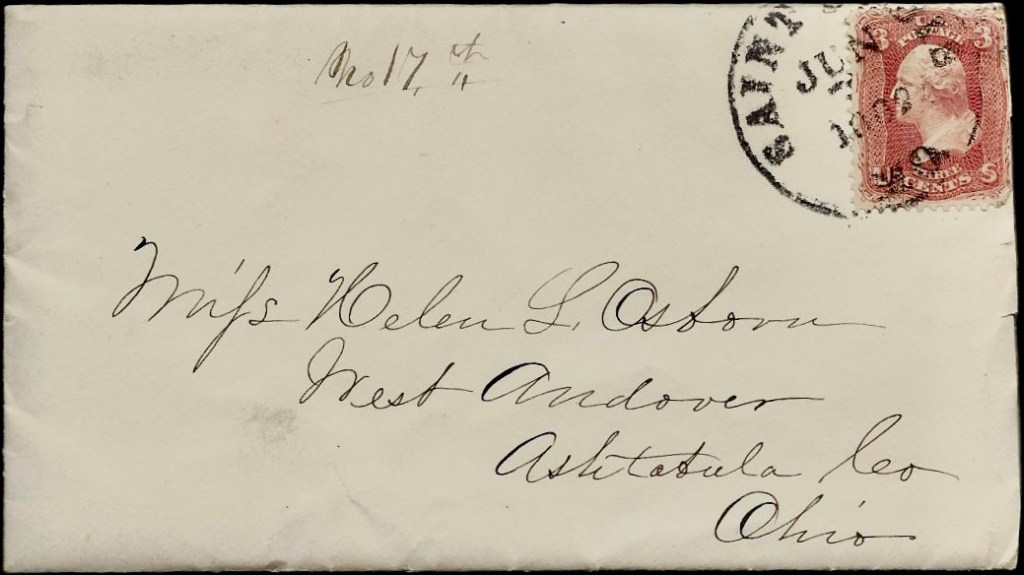 No 17, th
SAINT
JUN
U.S. POSTAGE
3 3
THREE CENTS
Miss Helen L. Osborn
West Andover
Ashtabula Co
Ohio